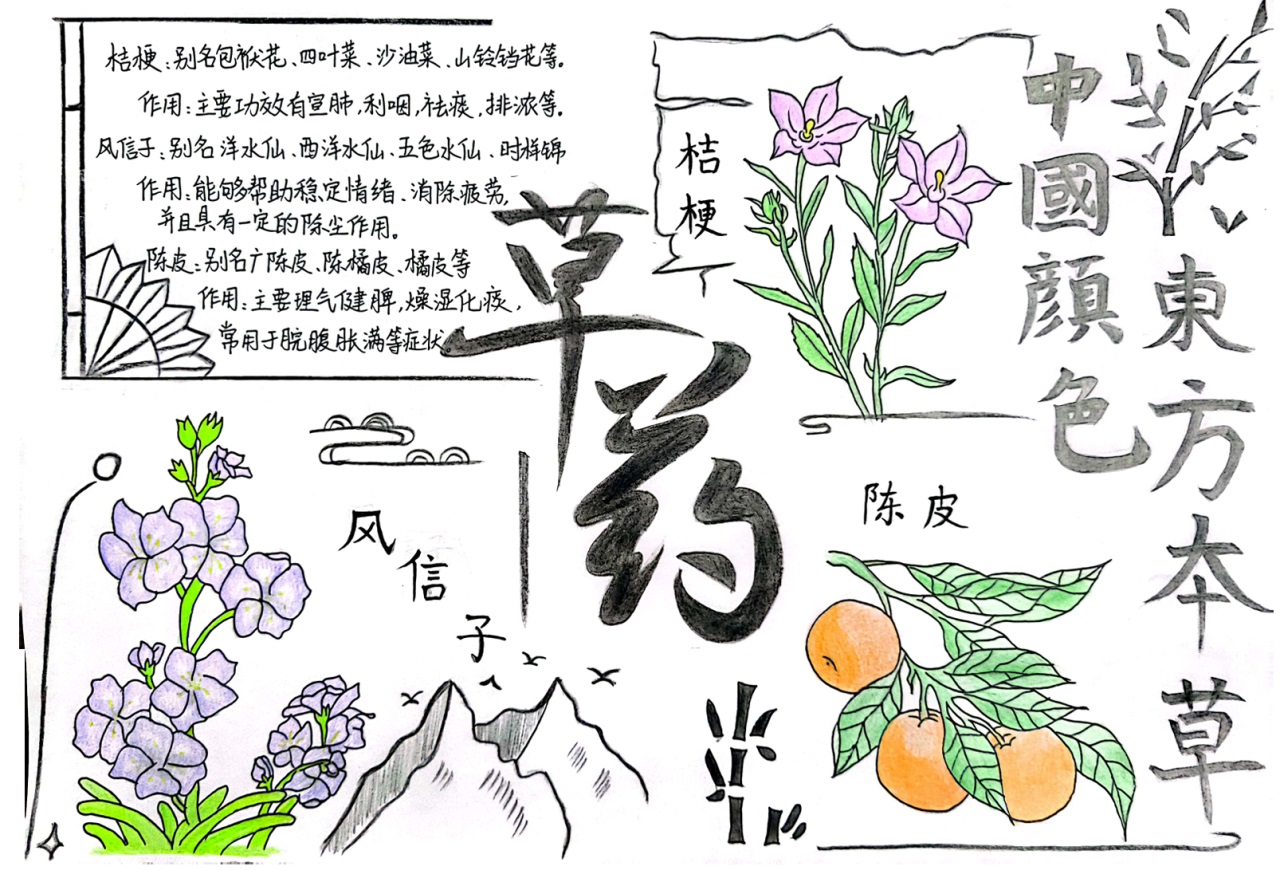 桔梗:别名包袱花、四叶菜、沙油菜、山铃铛花等。
作用:主要功效有宣肺,利咽,祛痰,排浓等。
风信子:别名洋水仙、西洋水仙、五色水仙、时样锦
作用:能够帮助稳定情绪、消除疲劳,
并且具有一定的除尘作用。
陈皮:别名广陈皮、陈橘皮、橘皮等
作用:主要理气健脾,燥湿化痰,
常用于脘腹胀满等症状。
草药
桔梗
中國顔色
東方本草
风信子
陈皮